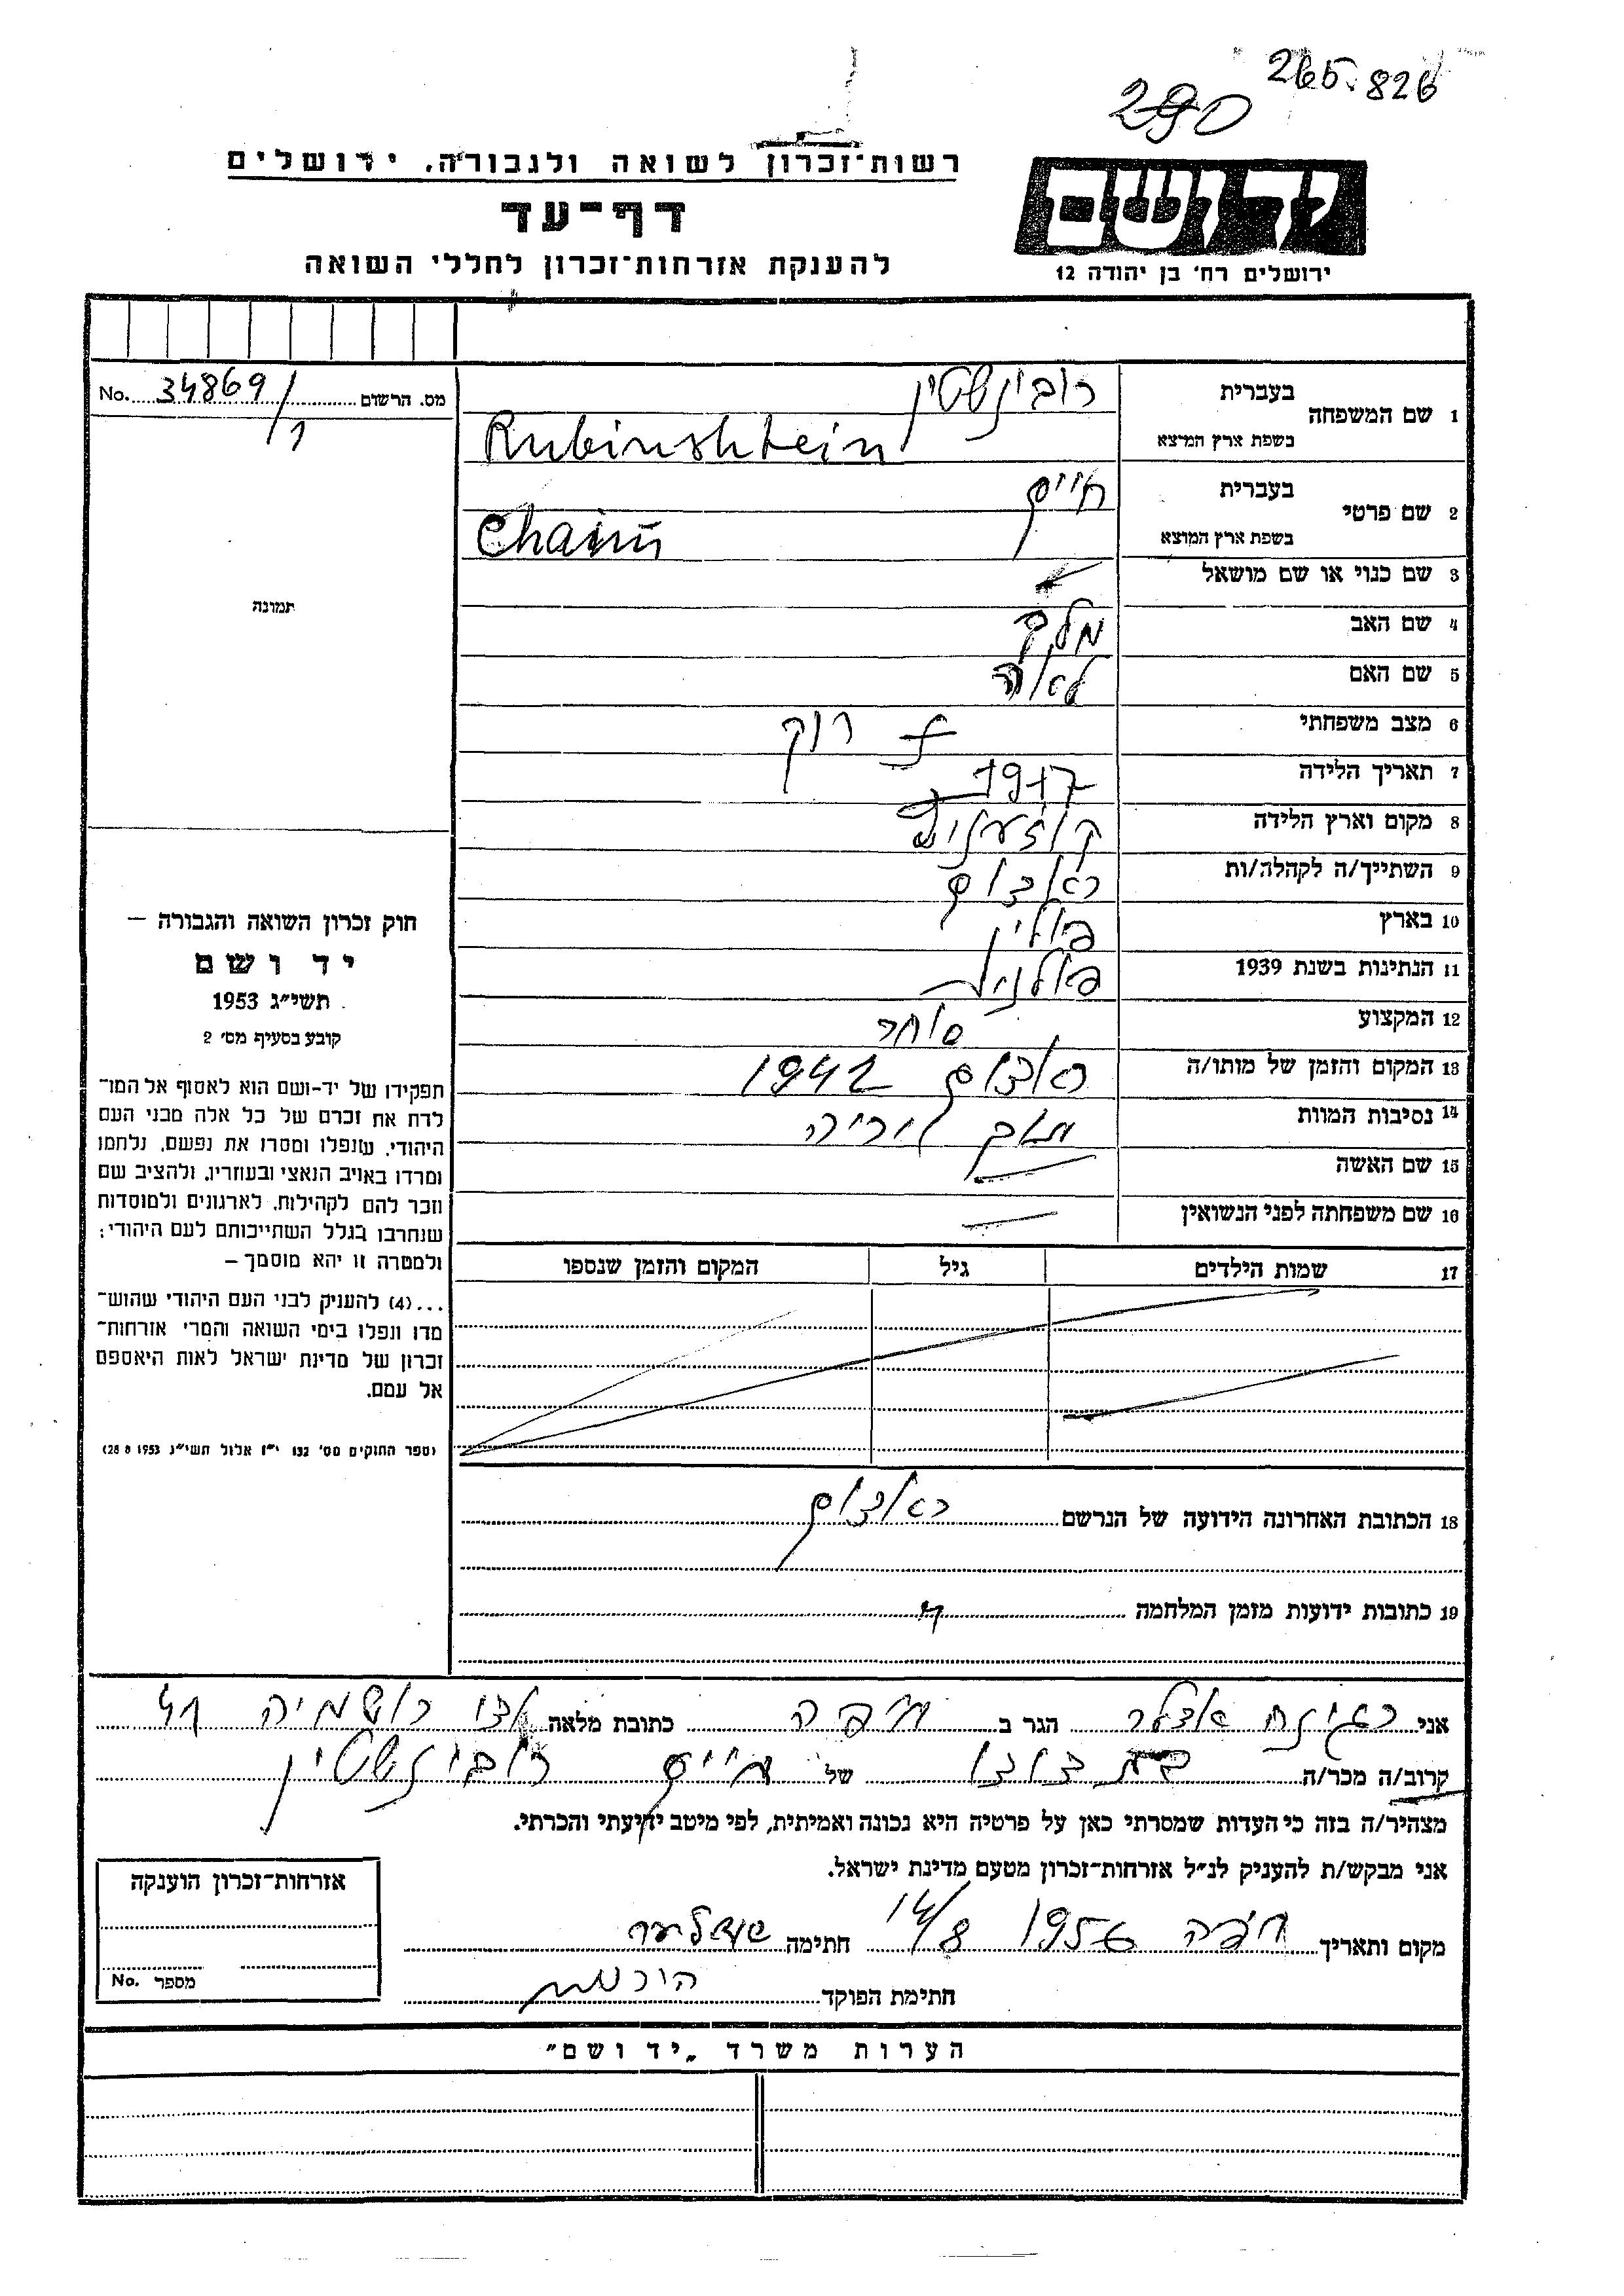 265.826
290
רשות־זכרון לשואה ולגבורה, ירושלים
דף־עד
להענקת אזרחות־זכרון לחללי השואה
יד ושם
ירושלים רח' בן יהודה 12
מס. הרשום 34869/1 No.
1 שם המשפחה בעברית רובינשטין
בשפת ארץ המוצא Rubinshtein
2 שם פרטי בעברית חיים
בשפת ארץ המוצא Chaim
3 שם כנוי או שם מושאל
4 שם האב מלך
5 שם האם לאה
6 מצב משפחתי רוק
7 תאריך הלידה 1917
8 מקום וארץ הלידה
9 השתייך/ה לקהלה/ות ראדום
10 בארץ פולין
11 הנתינות בשנת 1939 פולנית
12 המקצוע סוחר
13 המקום והזמן של מותו/ה ראדום 1942
14 נסיבות המוות יריה
15 שם האשה
16 שם משפחתה לפני הנשואין
17 שמות הילדים גיל המקום והזמן שנספו
18 הכתובת האחרונה הידועה של הנרשם ראדום
19 כתובות ידועות מזמן המלחמה
תמונה
חוק זכרון השואה והגבורה –
יד ושם
תשי״ג 1953
קובע בסעיף מס' 2
תפקידו של יד-ושם הוא לאסוף אל המו־
לדת את זכרם של כל אלה מבני העם
היהודי, שנפלו ומסרו את נפשם, נלחמו
ומרדו באויב הנאצי ובעוזריו, ולהציב שם
וזכר להם לקהילות, לארגונים ולמוסדות
שנחרבו בגלל השתייכותם לעם היהודי;
ולמטרה זו יהא מוסמך –
...(4) להעניק לבני העם היהודי שהוש־
מדו ונפלו בימי השואה והמרי אזרחות־
זכרון של מדינת ישראל לאות היאספם
אל עמם.
(ספר החוקים מס' 132 י״ז אלול תשי״ג 28.8.1953)
אני הגר ב חיפה כתובת מלאה רושמיה 41
קרוב/ה מכר/ה בת דודו של חיים רובינשטין
מצהיר/ה בזה כי העדות שמסרתי כאן על פרטיה היא נכונה ואמיתית, לפי מיטב ידיעתי והכרתי.
אני מבקש/ת להעניק לנ״ל אזרחות־זכרון מטעם מדינת ישראל.
מקום ותאריך חיפה 1956 14/8 חתימה
חתימת הפוקד
אזרחות־זכרון הוענקה
מספר No.
הערות משרד „יד ושם”